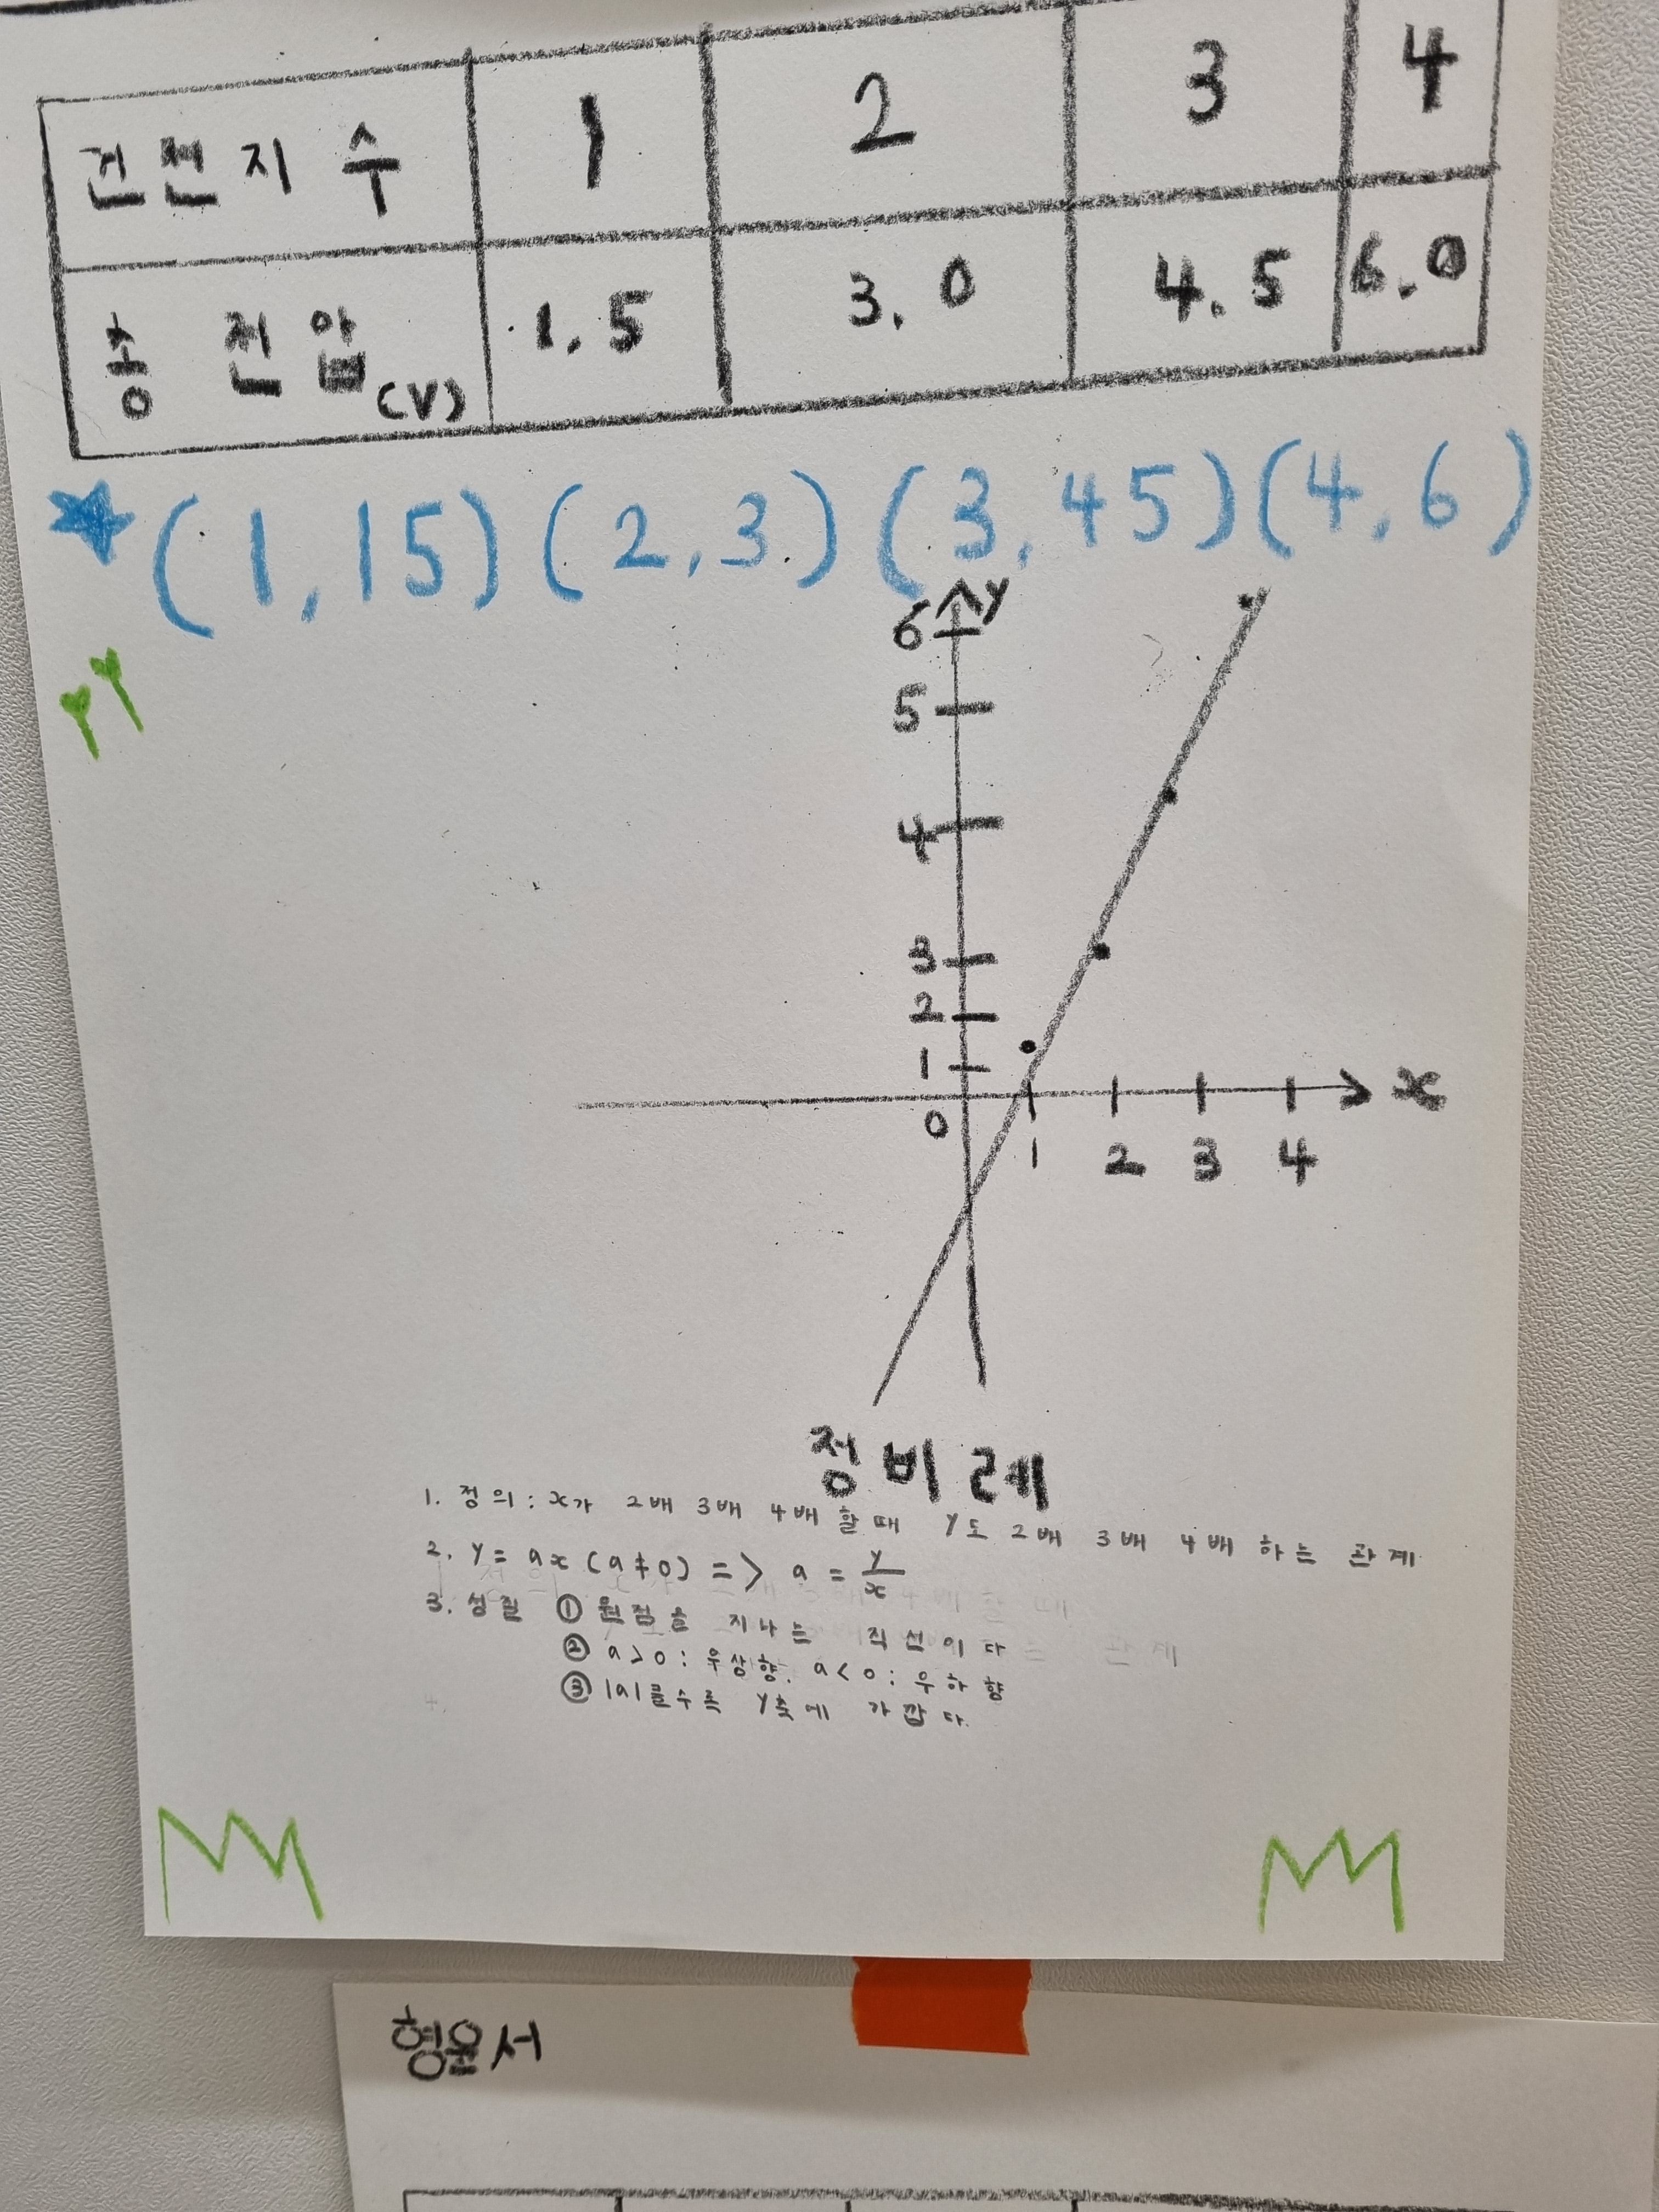 건전지 수 1 2 3 4
총 전압(V) 1.5 3.0 4.5 6.0
(1, 15) (2, 3) (3, 45) (4, 6)
y
6
5
4
3
2
1
0
1 2 3 4
x
정비례
1. 정의 : x가 2배 3배 4배 할 때 y도 2배 3배 4배 하는 관계
2. y = ax (a≠0) => a = y/x
3. 성질 ① 원점을 지나는 직선이다
② a>0 : 우상향. a<0 : 우하향
③ |a|클수록 y축에 가깝다.
형윤서